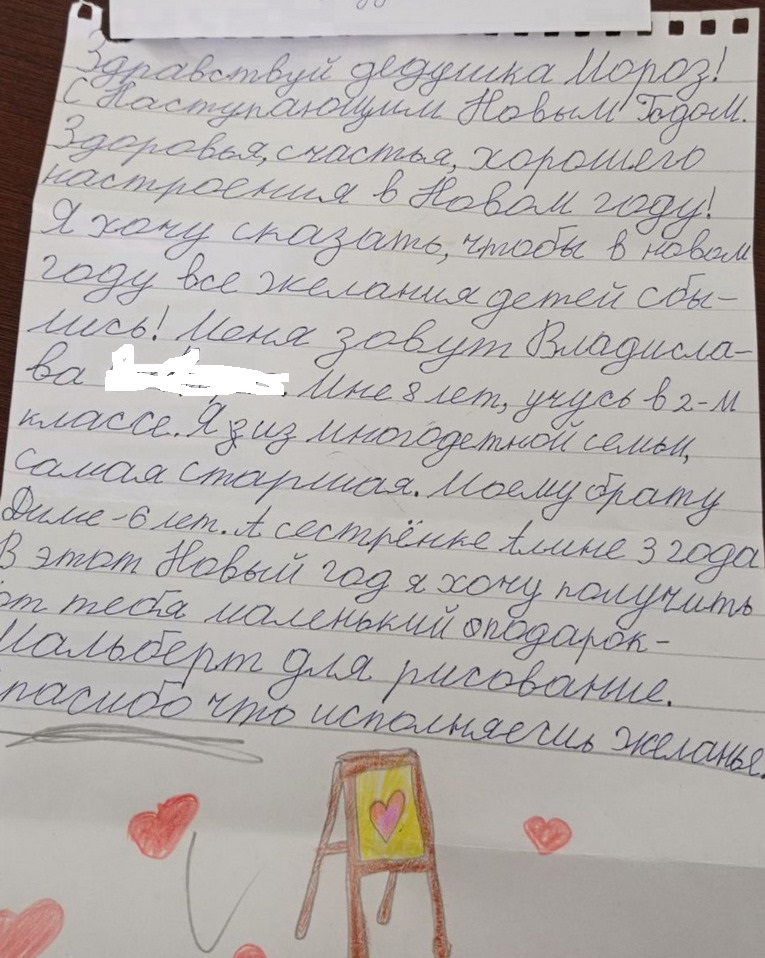 Здравствуй дедушка Мороз!
С Наступающим Новым Годом.
Здоровья, счастья, хорошего
настроения в Новом году!
Я хочу сказать, чтобы в новом
году все желания детей сбы-
лись! Меня зовут Владисла-
ва . Мне 8 лет, учусь в 2-м
классе. Я из многодетной семьи,
самая старшая. Моему брату
Диме - 6 лет. А сестрёнке Алине 3 года
В этот Новый год я хочу получить
от тебя маленький подарок-
Мальберт для рисование.
пасибо что исполняешь желанье.